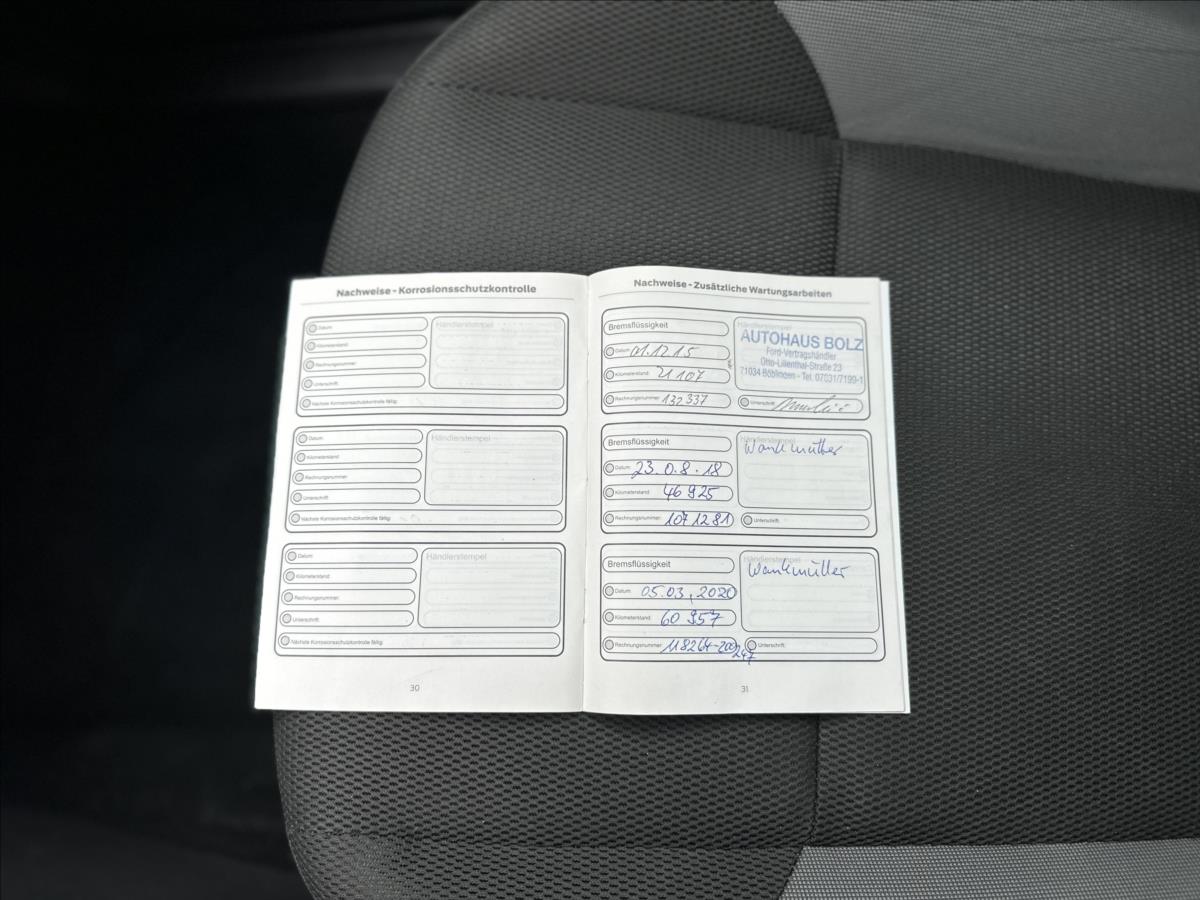 Nachweise - Korrosionsschutzkontrolle
Datum:
Händlerstempel
Kilometerstand:
Rechnungsnummer:
Unterschrift:
Nächste Korrosionsschutzkontrolle fällig:
Datum:
Händlerstempel
Kilometerstand:
Rechnungsnummer:
Unterschrift:
Nächste Korrosionsschutzkontrolle fällig:
Datum:
Händlerstempel
Kilometerstand:
Rechnungsnummer:
Unterschrift:
Nächste Korrosionsschutzkontrolle fällig:
30
Nachweise - Zusätzliche Wartungsarbeiten
Bremsflüssigkeit
Datum: 01.12.15
Kilometerstand: 21107
Rechnungsnummer: 132337
Händlerstempel
AUTOHAUS BOLZ
Ford-Vertragshändler
Otto-Lilienthal-Straße 23
71034 Böblingen - Tel. 07031/7199-1
Unterschrift:
Bremsflüssigkeit
Datum: 23.0.8.18
Kilometerstand: 46925
Rechnungsnummer: 1071281
Händlerstempel
Wankmüller
Unterschrift:
Bremsflüssigkeit
Datum: 05.03.2020
Kilometerstand: 60957
Rechnungsnummer: 118264-200247
Händlerstempel
Wankmüller
Unterschrift:
31